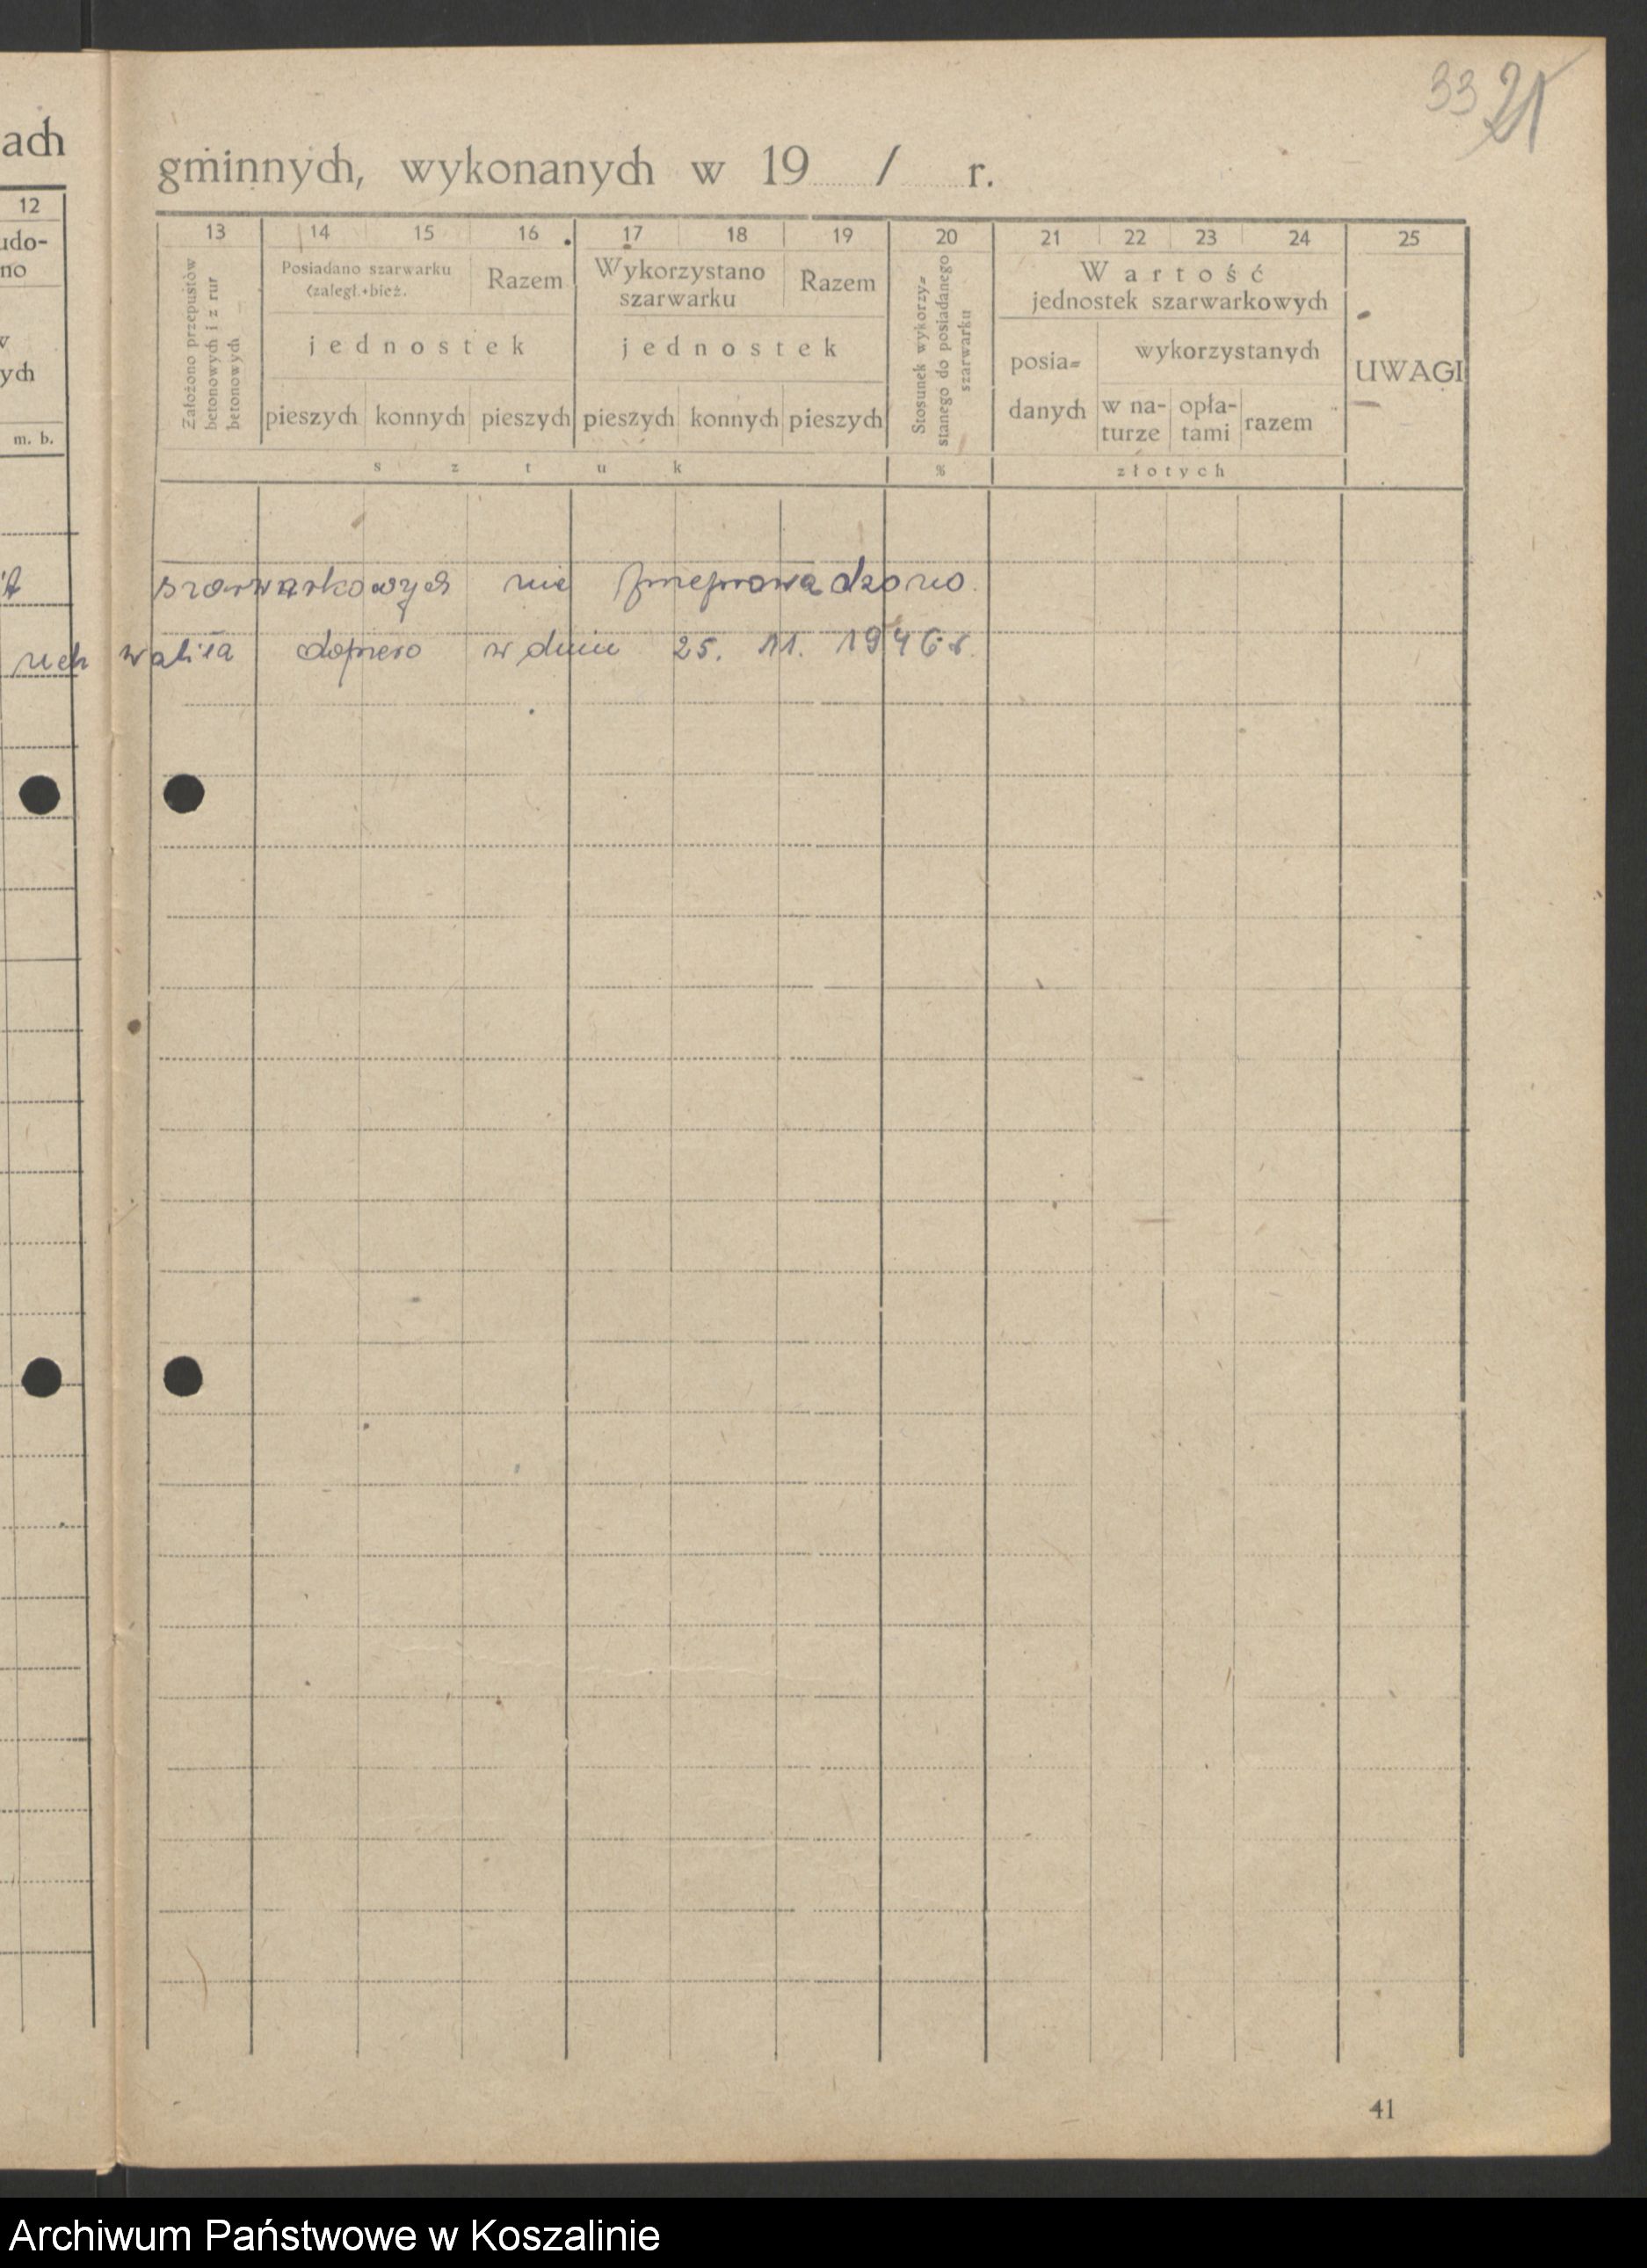 33 21
ach
gminnych, wykonanych w 19 / r.
12
udo-
no
w
ych
m. b.
13 14 15 16 17 18 19 20 21 22 23 24 25
Założono przepustów
betonowych i z rur
betonowych
Posiadano szarwarku
(zaległ.+bież.
Razem
jednostek
pieszych konnych pieszych
Wykorzystano
szarwarku
Razem
jednostek
pieszych konnych pieszych
Stosunek wykorzy=
stanego do posiadanego
szarwarku
Wartość
jednostek szarwarkowych
posia=
danych
wykorzystanych
w na-
turze
opła-
tami
razem
UWAGI
sztuk % złotych
szarwarkowych nie przeprowadzono.
uchwaliła dopiero w dniu 25. 11. 1946 r.
41
Archiwum Państwowe w Koszalinie